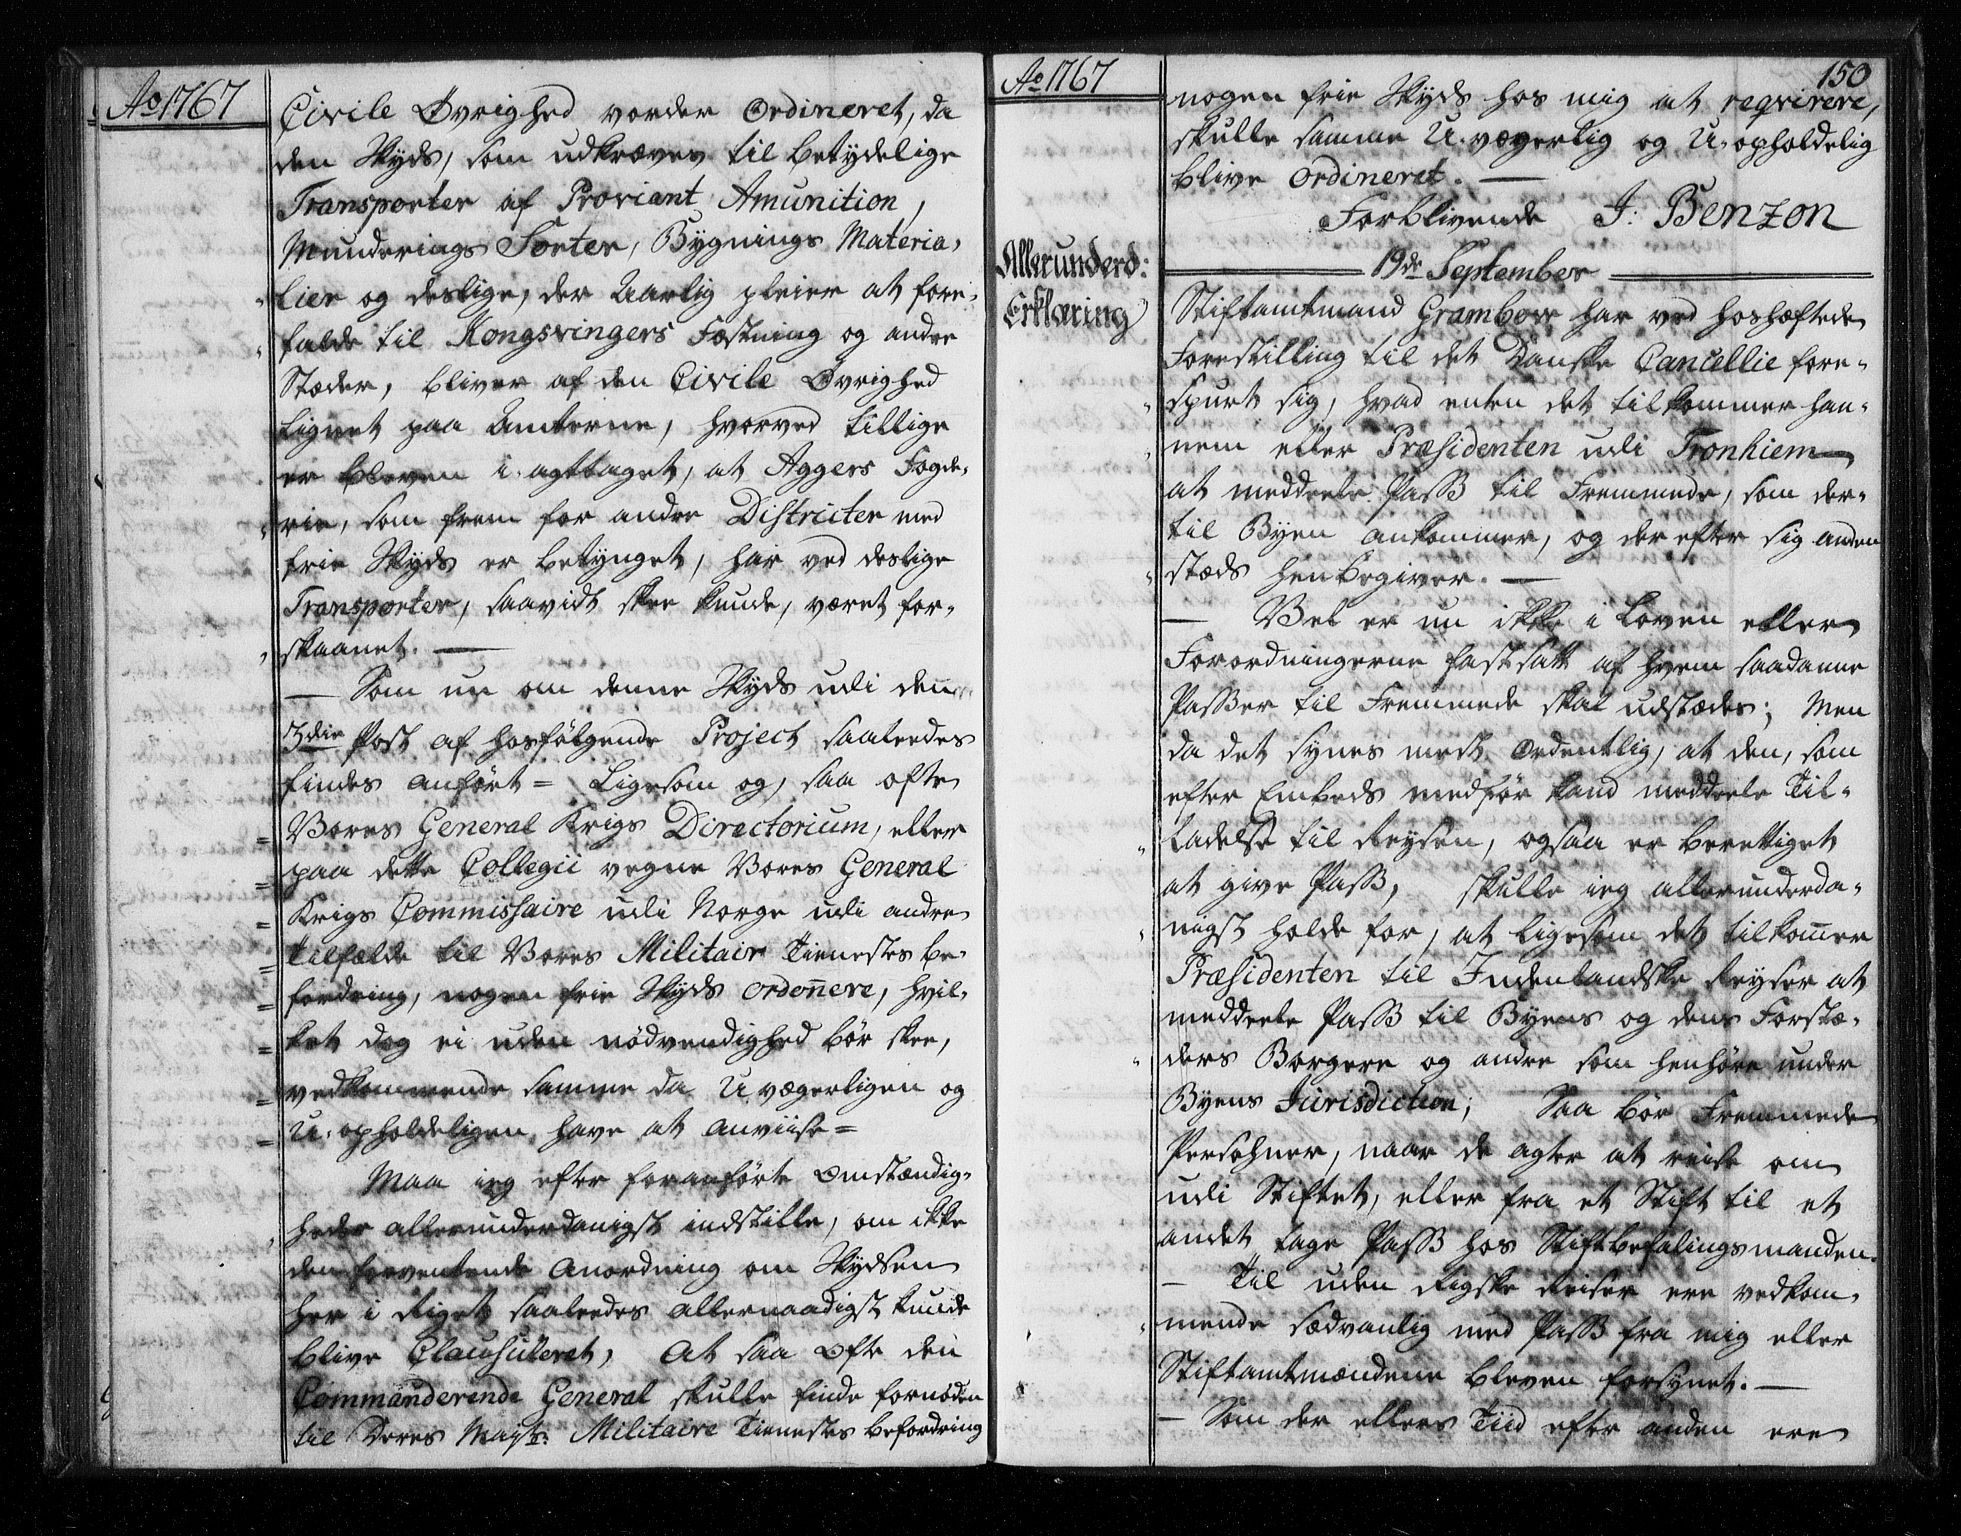 Ao 1767
Civile Øvrighed vorder Ordineret, da
den Skyds, som udkræves til betydelige
Transporter af Proviant Amunition,
Munderings Sorter, Bygnings Materia-
lier og deslige, der Aarlig pleier at fore-
falde til Kongsvingers Fæstning og andre
Stæder, bliver af den Civile Øvrighed
lignet paa Amterne, hvorved tillige
er bleven i agttaget, at Aggers Fogde-
rie, som frem for andre Districter med
frie Skyds er betynget, har ved deslige
Transporter, saavidt skee kunde, været for-
skaanet. —
— Som nu om denne Skyds udi den
3die Post af hosfølgende Project saaledes
findes anført = Ligesom og, saa ofte
Vores General Krigs Directorium, eller
paa dette Collegii vegne Vores General
Krigs Commissaire udi Norge udi andre
Tilfælde til Vores Militair Tienestes be-
fordring, nogen frie Skyds ordonnere, hvil-
ket dog ei uden nödvendighed bör skee,
vedkommende samme da Uvægerligen og
U-opholdeligen have at anviise =
Maa ieg efter foranførte Omstændig-
heder allerunderdanigst indstille, om ikke
den forventende Anordning om Skydsen
her i Riget saaledes allernaadigst kunde
blive Clausuleret, At saa ofte den
Commanderende General skulle finde fornøden
til Deres Mayts: Militaire Tienestes befordring
Ao 1767
150
nogen frie Skyds hos mig at reqvirere,
skulle samme U-vægerlig og U-opholdelig
blive Ordineret. —
Forblivende J: Benzon
19de September
Allerunderd:
Erklæring
Stiftamtmand Grambow har ved hoshæftede
Forestilling til det Danske Cancellie fore-
spurt sig, hvad enten det tilkommer han-
nem eller Præsidenten udi Tronhiem
at meddeele Pass til Fremmede, som der-
til Byen ankommer, og derefter sig anden
stæds henbegiver. —
— Vel er nu ikke i Loven eller
Forordningerne fastsatt af hvem saadanne
Passer til Fremmede skal udstædes; Men
da det synes mest Ordentlig, at den, som
efter Embeds medför kand meddeele Til-
ladelse til Reysen, ogsaa er berettiget
at give Pass, skulle ieg allerunderda-
nigst holde for, at ligesom det tilkommer
Præsidenten til Indenlandske Reyser at
meddeele Pass til Byens og dens Forstæ-
ders Borgere og andre som henhöre under
Byens Jurisdiction; Saa bör Fremmede
Persohner, naar de agter at reise om
udi Stiftet, eller fra et Stift til et
andet tage Pass hos Stiftbefalingsmanden.
— Til uden Rigske Reiser ere vedkom-
mende sædvanlig med Pass fra mig eller
Stiftamtmændene bleven forsynet. —
— Som der ellers Tiid efter anden ere